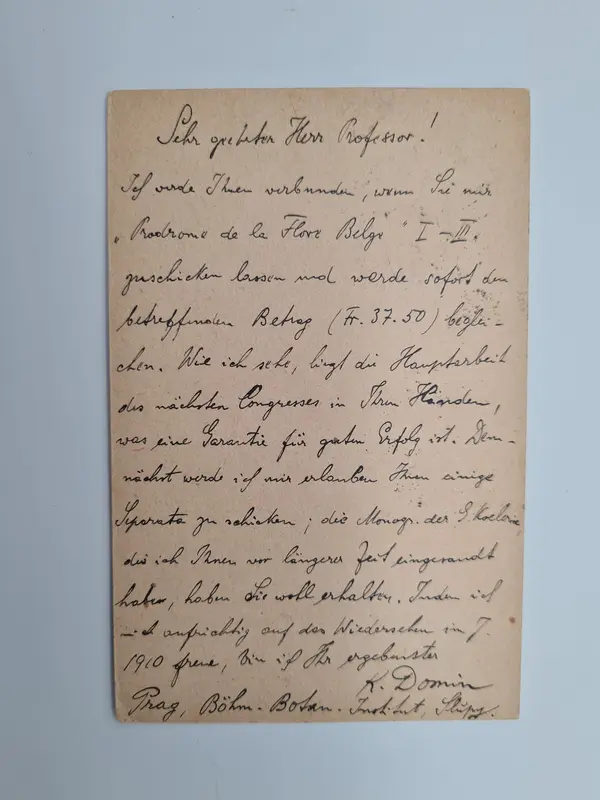 Sehr geehrter Herr Professor!
Ich werde Ihnen verbunden, wenn Sie mir
„Prodrome de la Flore Belge" I–III.
zuschicken lassen und werde sofort den
betreffenden Betrag (Fr. 37.50) beglei-
chen. Wie ich sehe, liegt die Hauptarbeit
des nächsten Congresses in Ihren Händen,
was eine Garantie für guten Erfolg ist. Dem-
nächst werde ich mir erlauben Ihnen einige
Separata zu schicken; die Monogr. der G. Koeleria,
die ich Ihnen vor längerer Zeit eingesandt
habe, haben Sie wohl erhalten. Indem ich
mich aufrichtig auf das Wiedersehen im J.
1910 freue, bin ich Ihr ergebenster
K. Domin
Prag, Böhm. Botan. Institut, Slupy.